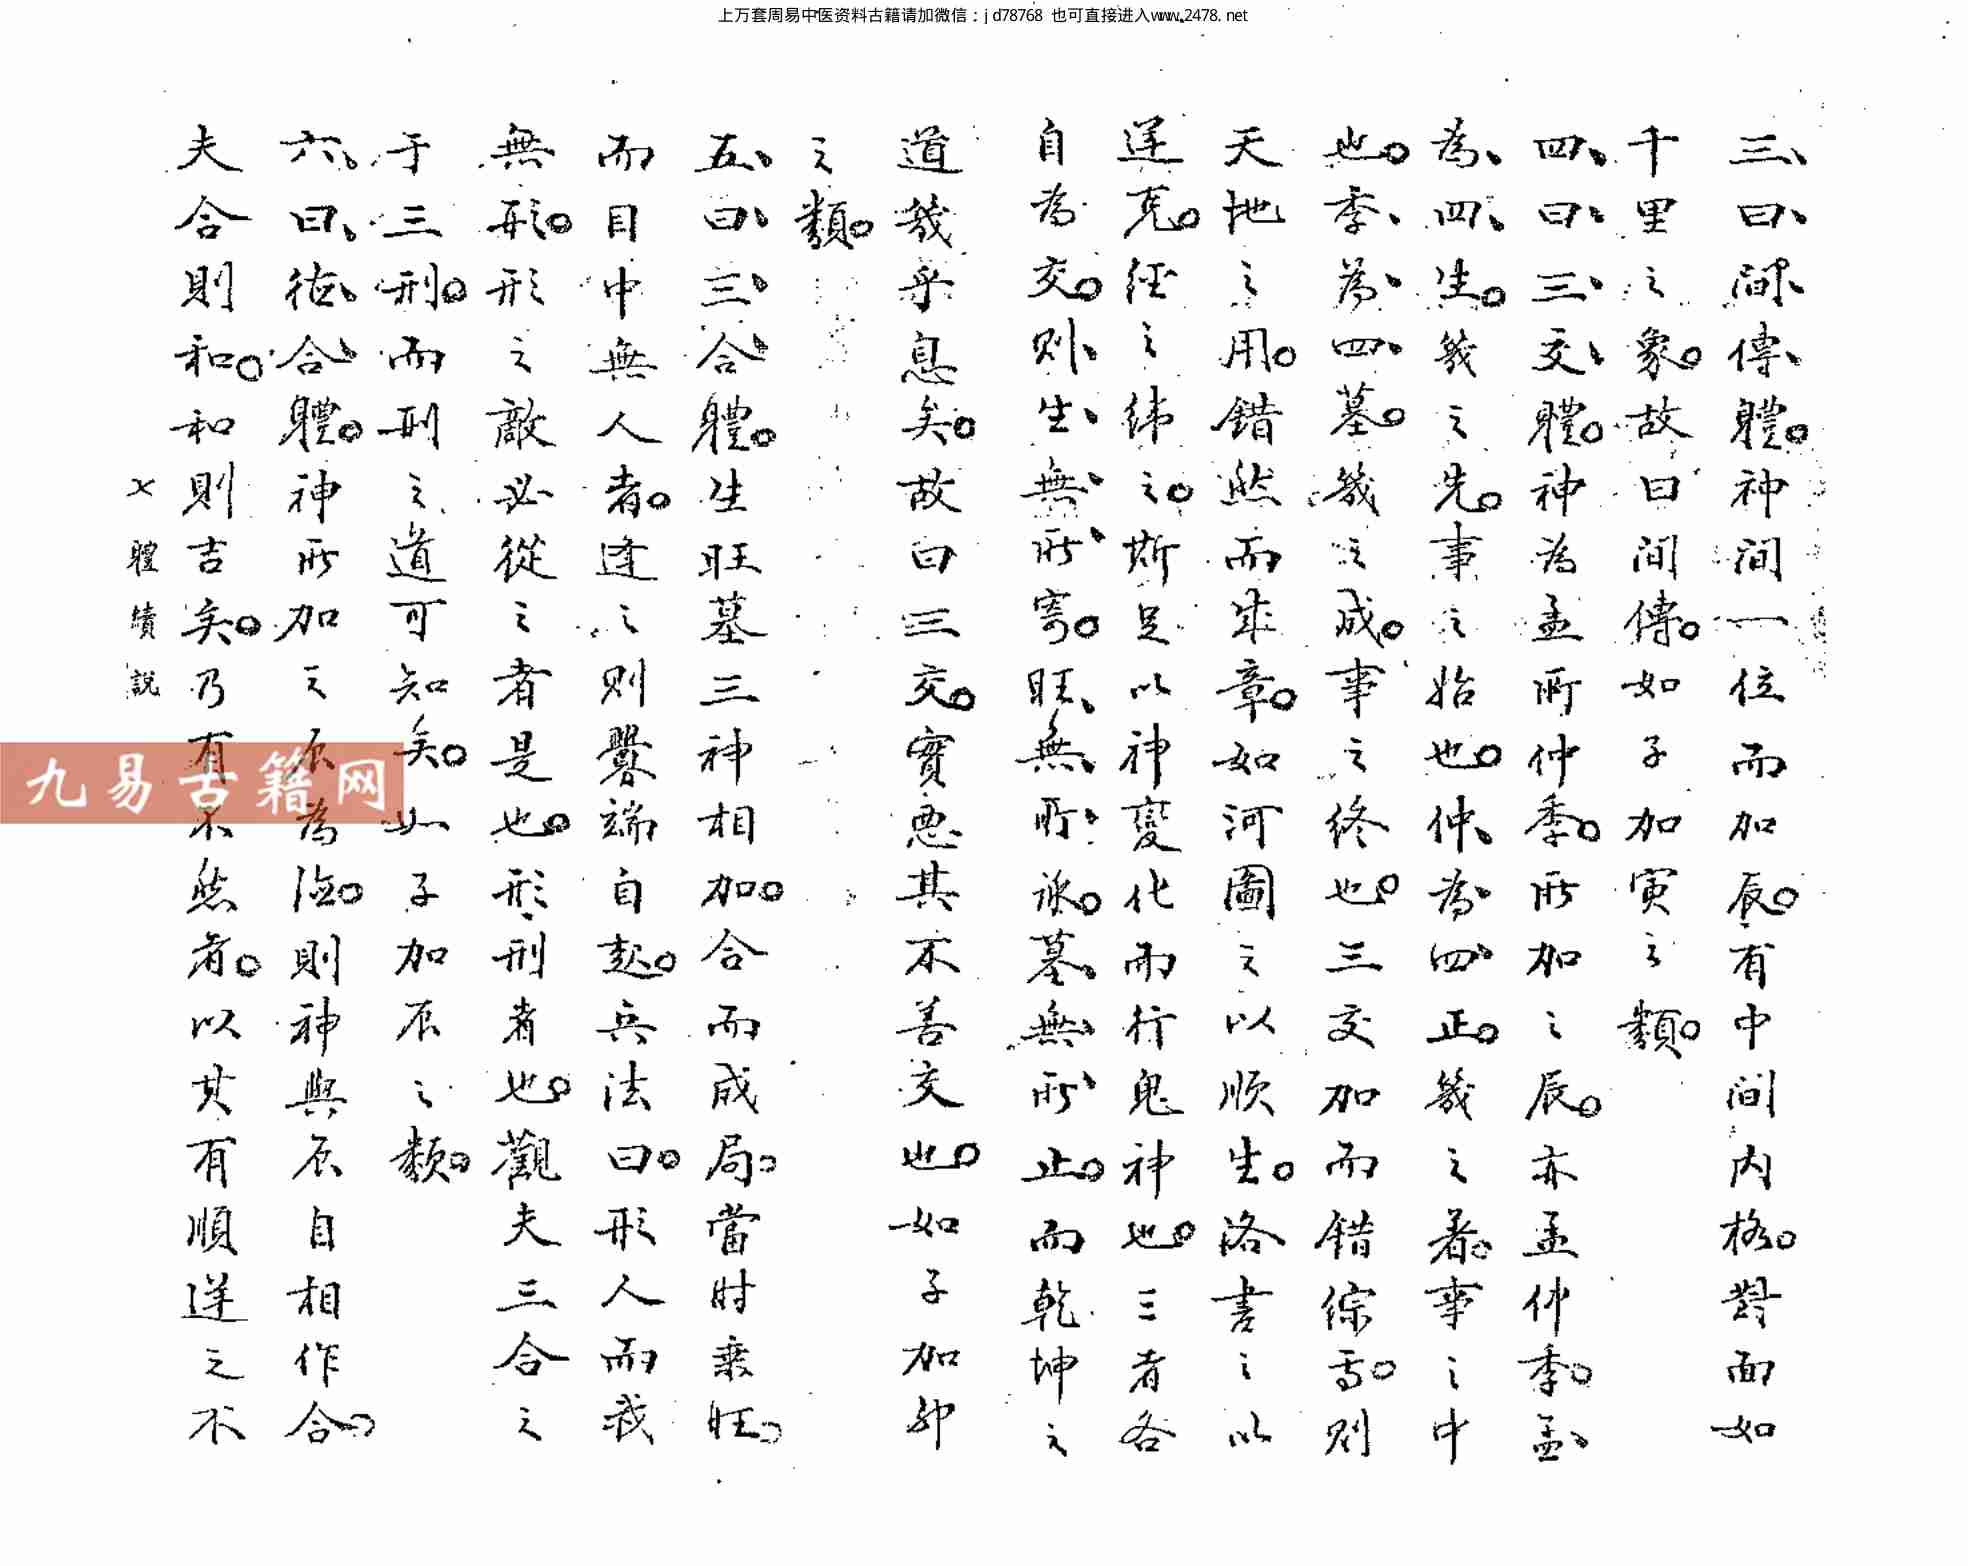 上万套周易中医资料古籍请加微信：jd78768 也可直接进入www.2478.net
三曰間傳體神間一位而加辰有中間内格對面如
千里之象故曰间傳如子加寅之類
四曰三交體神为孟所仲季所加之辰亦孟仲季孟
為四生幾之先事之始也仲為四正幾之着事之中
也季為四墓幾之成事之終也三交加而錯綜焉则
天地之用錯然而成章如河圖之以順生洛書之以
逆克經之緯之斯足以神變化而行鬼神也三者各
自為交则生無所寄旺無所承墓無所止而乾坤之
道幾乎息矣故曰三交實惡其不善交也如子加卯
之類
五曰三合體生旺墓三神相加合而成局當时乘旺
而目中無人者逢之则釁端自起兵法曰形人而我
無形形之敵必從之者是也形刑者也觀夫三合之
于三刑而刑之道可知矣如子加辰之類
六曰德合體神所加之辰為德則神與辰自相作合
夫合則和和則吉矣乃有不然者以其有順逆之不
體續說
九易古籍网